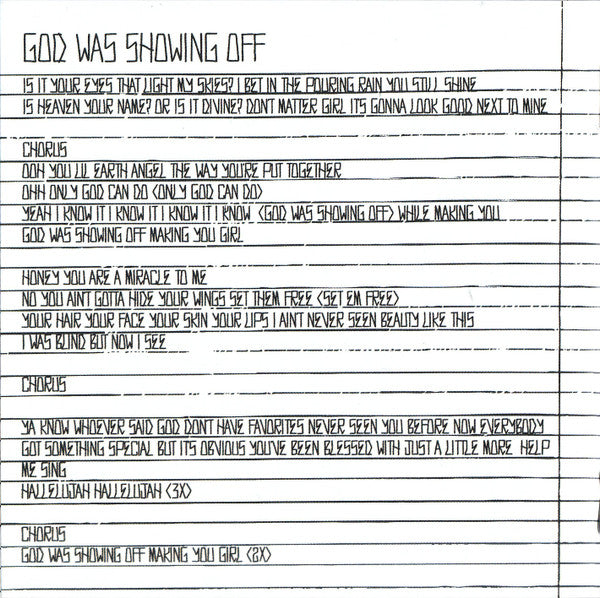 GOD WAS SHOWING OFF
IS IT YOUR EYES THAT LIGHT MY SKIES? I BET IN THE POURING RAIN YOU STILL SHINE
IS HEAVEN YOUR NAME? OR IS IT DIVINE? DONT MATTER GIRL ITS GONNA LOOK GOOD NEXT TO MINE
CHORUS
OOH YOU LIL EARTH ANGEL THE WAY YOU'RE PUT TOGETHER
OHH ONLY GOD CAN DO <ONLY GOD CAN DO>
YEAH I KNOW IT I KNOW IT I KNOW IT I KNOW <GOD WAS SHOWING OFF> WHILE MAKING YOU
GOD WAS SHOWING OFF MAKING YOU GIRL
HONEY YOU ARE A MIRACLE TO ME
NO YOU AINT GOTTA HIDE YOUR WINGS SET THEM FREE <SET EM FREE>
YOUR HAIR YOUR FACE YOUR SKIN YOUR LIPS I AINT NEVER SEEN BEAUTY LIKE THIS
I WAS BLIND BUT NOW I SEE
CHORUS
YA KNOW WHOEVER SAID GOD DONT HAVE FAVORITES NEVER SEEN YOU BEFORE NOW EVERYBODY
GOT SOMETHING SPECIAL BUT ITS OBVIOUS YOU'VE BEEN BLESSED WITH JUST A LITTLE MORE HELP
ME SING
HALLELUJAH HALLELUJAH <3X>
CHORUS
GOD WAS SHOWING OFF MAKING YOU GIRL <2X>